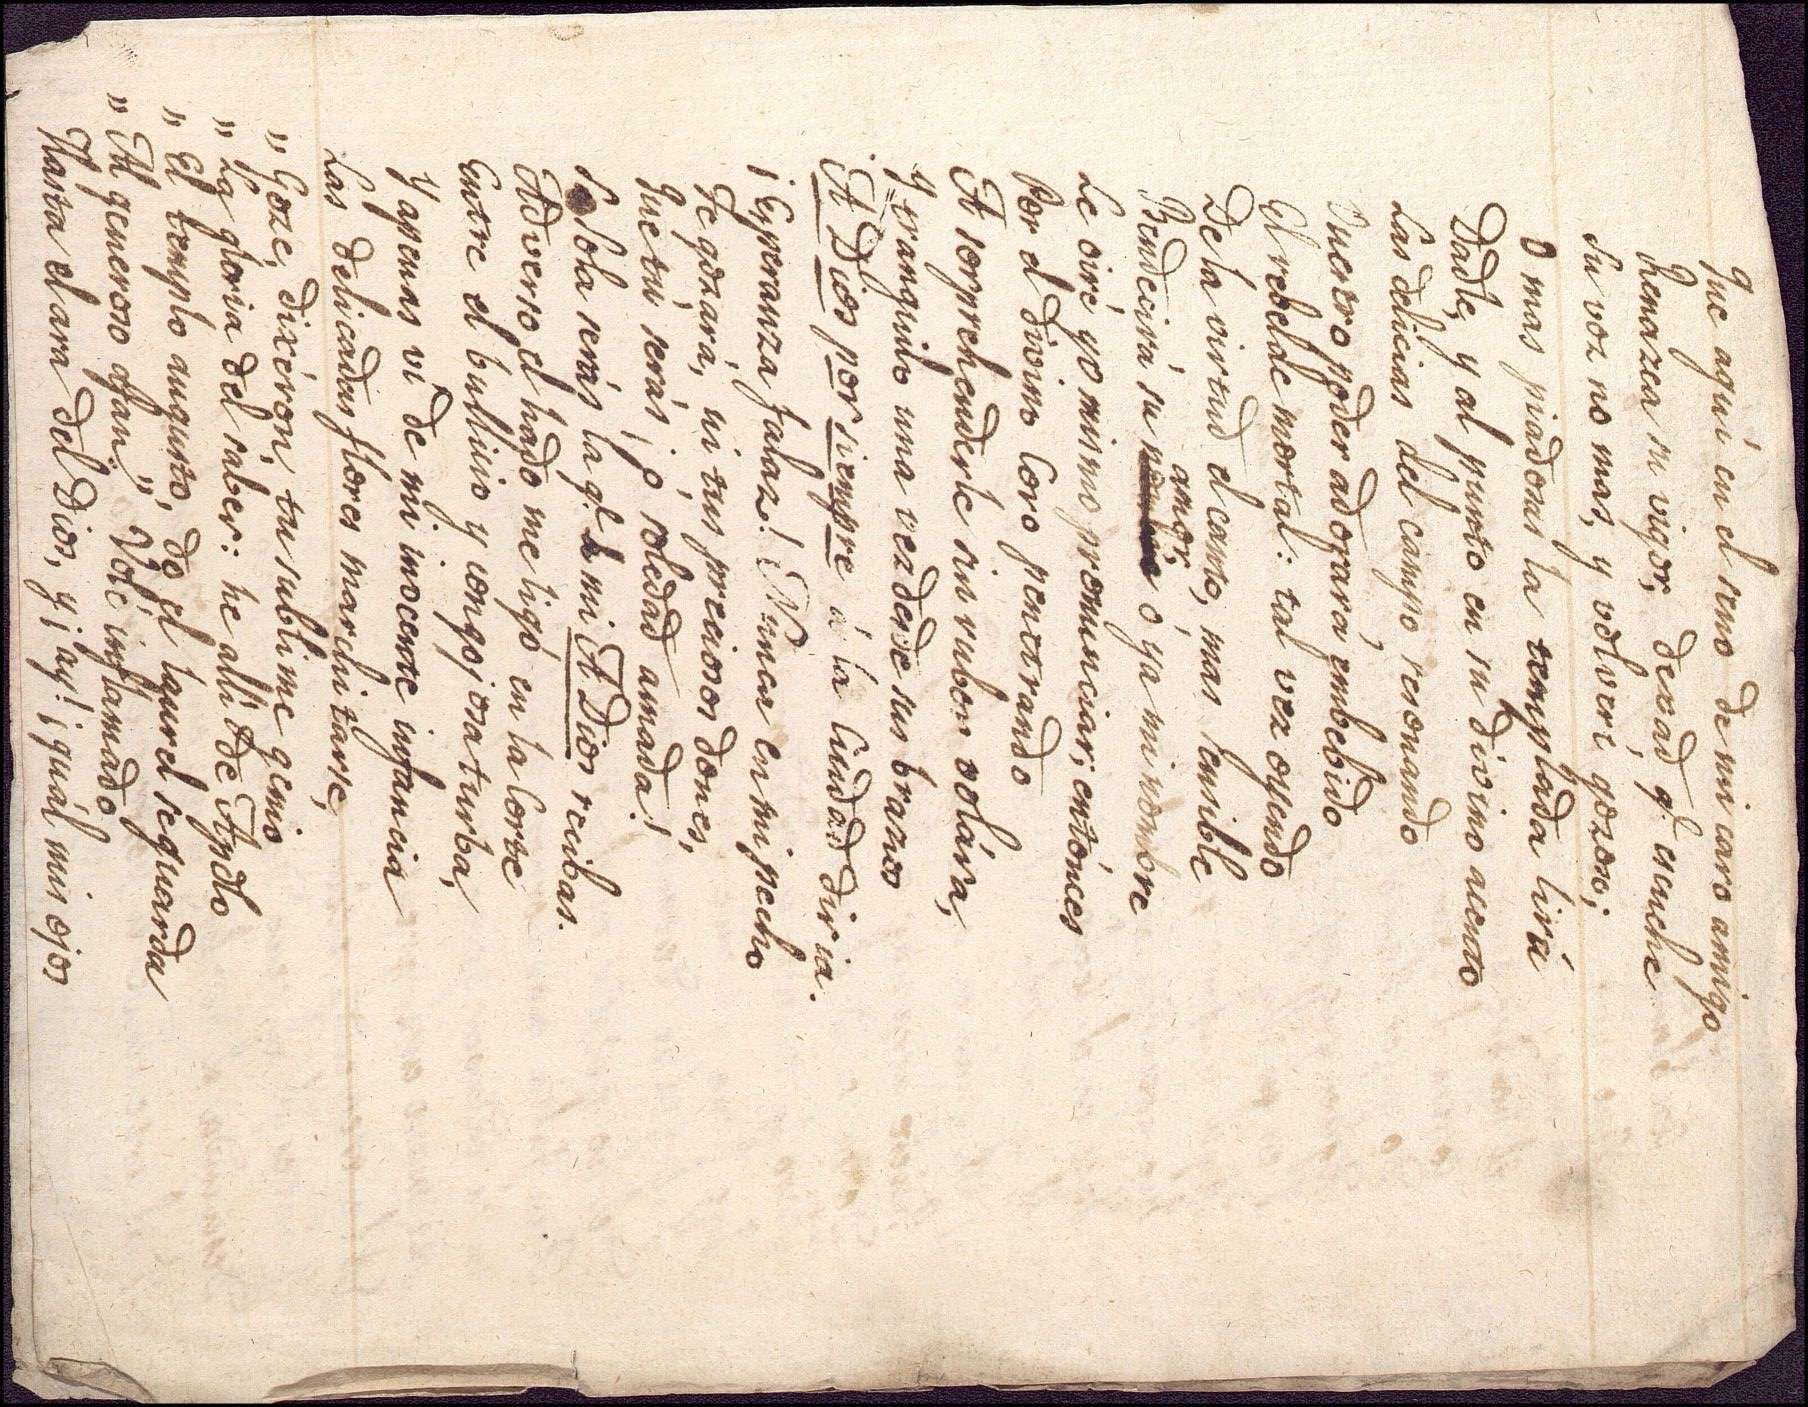 Que aquí en el seno de mi caro amigo
Renazca su vigor, dexad q.e escuche
Su voz no mas, y volveré gozoso;
O mas piadosas la templada lira
Dadle, y al punto en su divino acento
Las delicias del campo resonando
Vuestro poder adorará embebido
El rebelde mortal: tal vez oyendo
De la virtud el canto, mas sensible
amor,
Bendecirá su nombre ó ya mi nombre
Le oiré yo mismo pronunciar; entónces
Por el divino Coro penetrando
A sorprehenderle sin rubor volára,
Y tranquilo una vez desde sus brazos
A Dios por siempre á la Ciudad diria.
¡Esperanza falaz! Nunca en mi pecho
Te gozará, ni tus preciosos dones,
Que tú serás, ¡o soledad amada!
Sola serás la q.e mi A Dios recibas.
Adverso el hado me ligó en la Corte
Entre el bullicio y congojosa turba,
Y apenas ví de mi inocente infancia
Las delicadas flores marchitarse,
„ Goze, dixéron, tu sublime genio
„ La gloria del saber: he allí de Apolo
„ El templo augusto, do el laurel se guarda
„ Al generoso afan.„ Volé inflamado
Hasta el ara del Dios, y ¡ay! ¡quál mis ojos